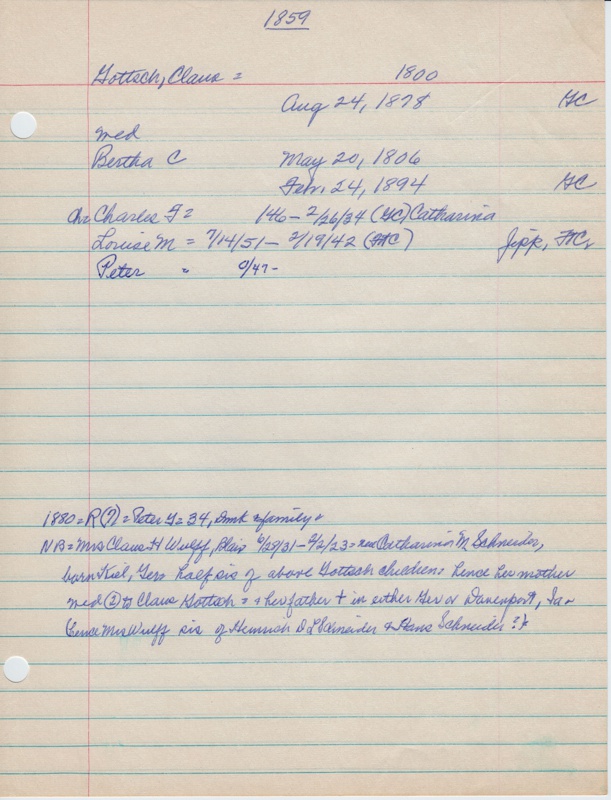 1859
Gottsch, Claus = 1800
Aug 24, 1878 GC
med
Bertha C May 20, 1806
Feb. 24, 1894 GC
Ch Charles F = 146 - 2/26/34 (GC) Catharina
Louise M = 7/14/51 - 2/19/42 (FHC) Jipp, FHC,
Peter " 0/47 -
1880 = R(7) = Peter G = 34, & family
NB = Mrs Claus H Wulff, Blair 6/28/31 - 2/2/23 = Catharina M Schneider,
born Kiel, Ger, half sis of above Gottsch children = hence her mother
med (2) to Claus Gottsch = & her father + in either Ger or Davenport, Ia
hence Mrs Wulff sis of Heinrich D L Schneider & Hans Schneider ?